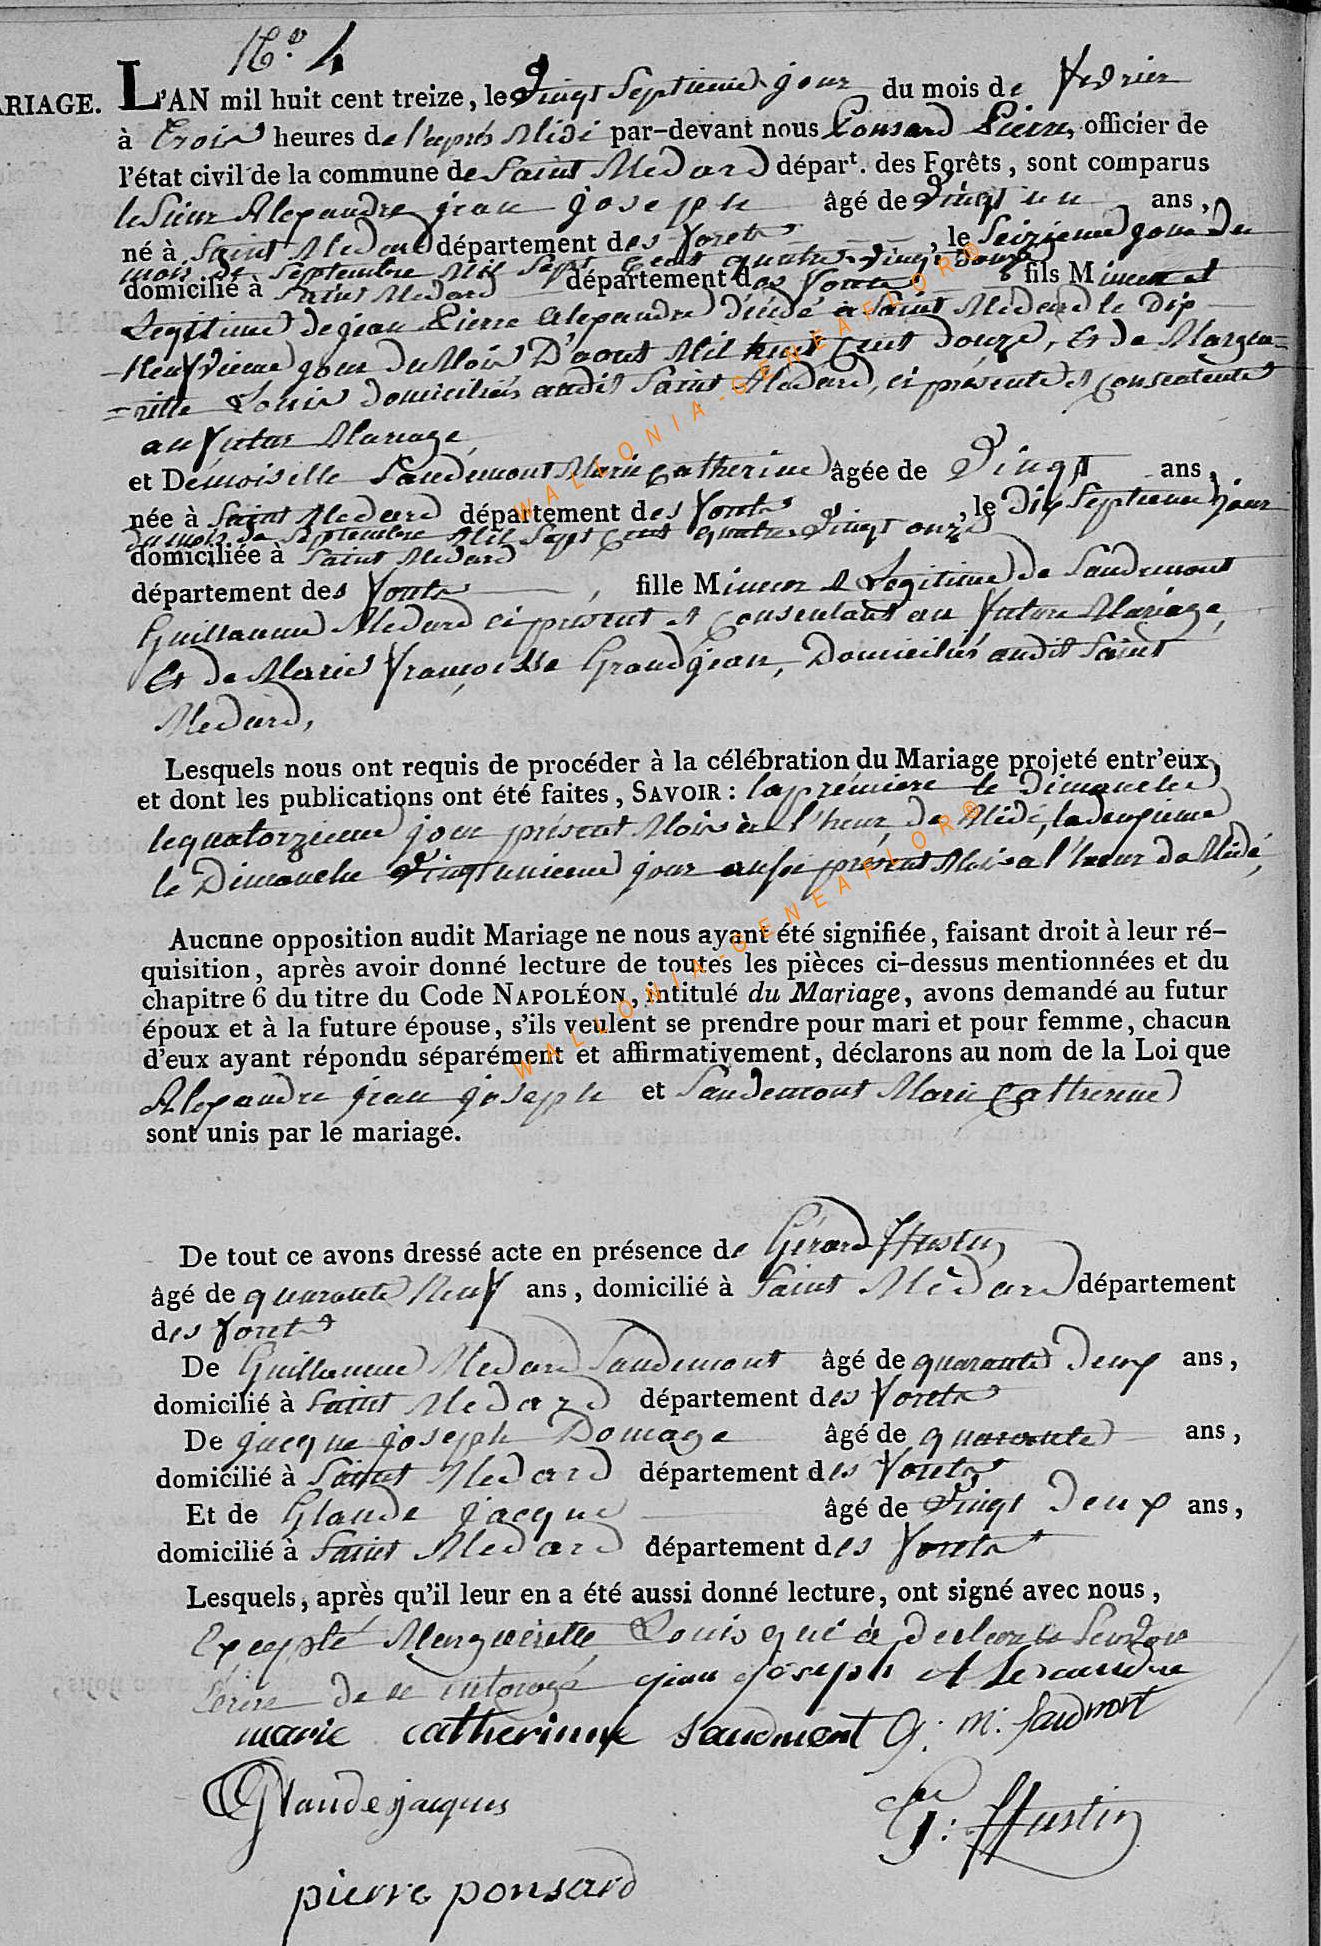 N.º 4
ARIAGE. L'AN mil huit cent treize, le Vingt Septieme jour du mois de fevrier
à Trois heures de l'après Midi par-devant nous Ponsard Pierre, officier de
l'état civil de la commune de Saint Medard départ. des Forêts, sont comparus
le Sieur Alexandre jean joseph âgé de Vingt un ans,
né à Saint Medard département des forets, le Seizieme jour du
mois de Septembre Mil Sept Cent quatre Vingt
domicilié à Saint Medard département des forets fils Mineur et
Legitime de jean Pierre Alexandre décédé à Saint Medard le Dix
Neufvieme jour du Mois D'aout Mil huit Cent douze, Et de Margue=
=ritte Louis domiciliés audit Saint Medard, ci présente et consentente
au futur Mariage,
et Demoiselle Saudemont Marie Catherine âgée de Vingt ans,
née à Saint Medard département des forets, le Dix Septieme jour
du mois de Septembre Mil Sept Cent quatre Vingt onze
domiciliée à Saint Medard
département des forets, fille Mineur et Legitime de Saudemont
Guillaume Medard ci présent et Consentant au futur Mariage,
Et de Marie françoisse Grandjean, Domiciliés audit Saint
Medard,
Lesquels nous ont requis de procéder à la célébration du Mariage projeté entr'eux,
et dont les publications ont été faites, SAVOIR : la prémiere le Dimanche
le quatorzieme jour présent Mois à l'heur de Midé, la deuxieme
le Dimanche Vingt unieme jour aussi présent Mois a l'heur de Midé,
Aucune opposition audit Mariage ne nous ayant été signifiée, faisant droit à leur ré-
quisition, après avoir donné lecture de toutes les pièces ci-dessus mentionnées et du
chapitre 6 du titre du Code NAPOLÉON, intitulé du Mariage, avons demandé au futur
époux et à la future épouse, s'ils veulent se prendre pour mari et pour femme, chacun
d'eux ayant répondu séparément et affirmativement, déclarons au nom de la Loi que
Alexandre jean joseph et Saudemont Marie Catherine
sont unis par le mariage.
De tout ce avons dressé acte en présence de Gérard Hustin
âgé de quarante Neuf ans, domicilié à Saint Médard département
des forets
De Guillaume Medard Saudemont âgé de quarante Deux ans,
domicilié à Saint Medard département des forets
De jacque joseph Domage âgé de quarante ans,
domicilié à Saint Medard département des forets
Et de Glaude jacque âgé de Vingt Deux ans,
domicilié à Saint Medard département des forets
Lesquels, après qu'il leur en a été aussi donné lecture, ont signé avec nous,
Excepté Margueritte Louis qui à
de ce jean joseph Alexandre
marie catherinne saudment G: m: saudmont
Glaude jacques
G: Hustin
pierre ponsard
WALLONIA-GENEAFLOR®
WALLONIA-GENEAFLOR®